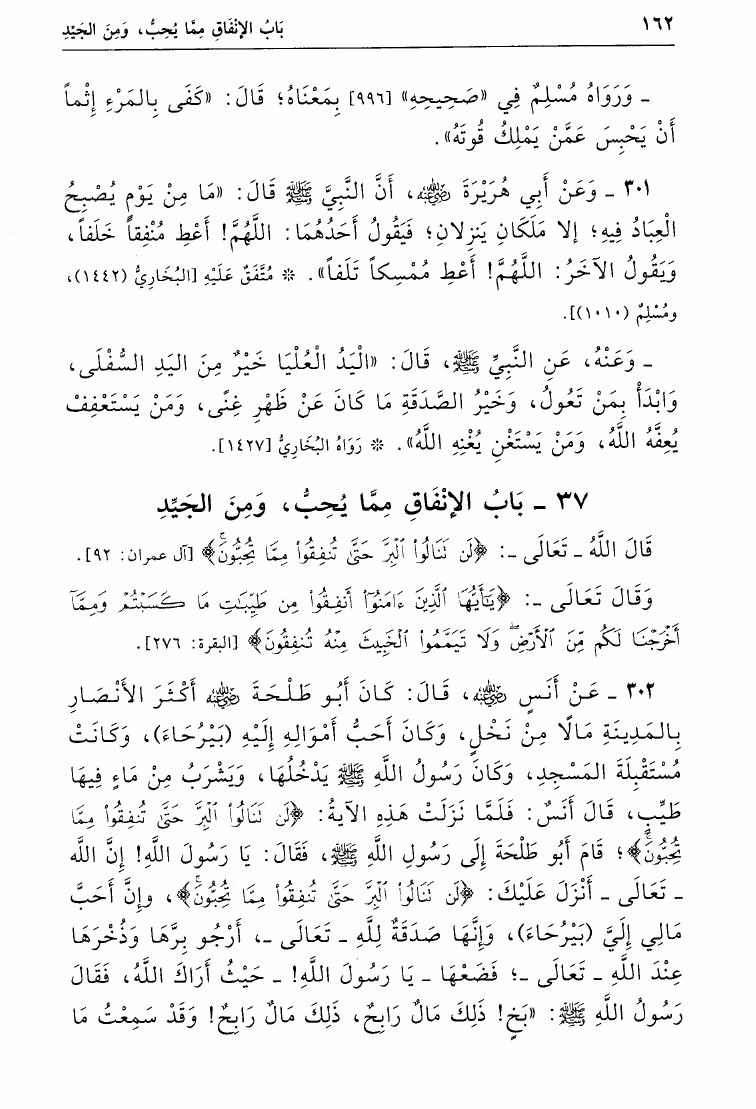 ١٦٢ بَابُ الإِنْفَاقِ مِمَّا يُحِبُّ، وَمِنَ الجَيِّدِ
ـ وَرَوَاهُ مُسْلِمٌ فِي «صَحِيحِهِ» [٩٩٦] بِمَعْنَاهُ؛ قَالَ: «كَفَى بِالمَرْءِ إِثْماً
أَنْ يَحْبِسَ عَمَّنْ يَمْلِكُ قُوتَهُ».
٣٠١ ـ وَعَنْ أَبِي هُرَيْرَةَ رضي الله عنه، أَنَّ النَّبِيَّ ﷺ قَالَ: «مَا مِنْ يَوْمٍ يُصْبِحُ
الْعِبَادُ فِيهِ؛ إلا مَلَكَانِ يَنزِلانِ؛ فَيَقُولُ أَحَدُهُمَا: اللَّهُمَّ! أَعْطِ مُنْفِقاً خَلَفاً،
وَيَقُولُ الآخَرُ: اللَّهُمَّ! أَعْطِ مُمْسِكاً تَلَفاً». * مُتَّفَقٌ عَلَيْهِ [البُخَارِيُّ (١٤٤٢)،
ومُسْلِمٌ (١٠١٠)].
ـ وَعَنْهُ، عَنِ النَّبِيِّ ﷺ، قَالَ: «الْيَدُ الْعُلْيَا خَيْرٌ مِنَ اليَدِ السُّفْلَى،
وَابْدَأْ بِمَنْ تَعُولُ، وَخَيْرُ الصَّدَقَةِ مَا كَانَ عَنْ ظَهْرِ غِنًى، وَمَنْ يَسْتَعْفِفْ
يُعِفَّهُ اللَّهُ، وَمَنْ يَسْتَغْنِ يُغْنِهِ اللَّهُ». * رَوَاهُ البُخَارِيُّ [١٤٢٧].
٣٧ ـ بَابُ الإِنْفَاقِ مِمَّا يُحِبُّ، وَمِنَ الجَيِّدِ
قَالَ اللَّهُ ـ تَعَالَى ـ: ﴿لَن تَنَالُوا۟ ٱلْبِرَّ حَتَّىٰ تُنفِقُوا۟ مِمَّا تُحِبُّونَۚ﴾ [آل عمران: ٩٢].
وَقَالَ تَعَالَى ـ: ﴿يَـٰٓأَيُّهَا ٱلَّذِينَ ءَامَنُوٓا۟ أَنفِقُوا۟ مِن طَيِّبَـٰتِ مَا كَسَبْتُمْ وَمِمَّآ
أَخْرَجْنَا لَكُم مِّنَ ٱلْأَرْضِۖ وَلَا تَيَمَّمُوا۟ ٱلْخَبِيثَ مِنْهُ تُنفِقُونَ﴾ [البقرة: ٢٧٦].
٣٠٢ ـ عَنْ أَنَسٍ رضي الله عنه، قَالَ: كَانَ أَبُو طَلْحَةَ رضي الله عنه أَكْثَرَ الأَنْصَارِ
بِالمَدِينَةِ مَالًا مِنْ نَخْلٍ، وَكَانَ أَحَبُّ أَمْوَالِهِ إِلَيْهِ (بَيْرُحَاءَ)، وَكَانَتْ
مُسْتَقْبِلَةَ المَسْجِدِ، وَكَانَ رَسُولُ اللَّهِ ﷺ يَدْخُلُهَا، وَيَشْرَبُ مِنْ مَاءٍ فِيهَا
طَيِّبٍ، قَالَ أَنَسٌ: فَلَمَّا نَزَلَتْ هَذِهِ الآيَةُ: ﴿لَن تَنَالُوا۟ ٱلْبِرَّ حَتَّىٰ تُنفِقُوا۟ مِمَّا
تُحِبُّونَۚ﴾؛ قَامَ أَبُو طَلْحَةَ إِلَى رَسُولِ اللَّهِ ﷺ، فَقَالَ: يَا رَسُولَ اللَّهِ! إِنَّ اللَّهَ
ـ تَعَالَى ـ أَنْزَلَ عَلَيْكَ: ﴿لَن تَنَالُوا۟ ٱلْبِرَّ حَتَّىٰ تُنفِقُوا۟ مِمَّا تُحِبُّونَۚ﴾، وإِنَّ أَحَبَّ
مَالِي إِلَيَّ (بَيْرُحَاءَ)، وَإِنَّهَا صَدَقَةٌ لِلَّهِ ـ تَعَالَى ـ، أَرْجُو بِرَّهَا وَذُخْرَهَا
عِنْدَ اللَّهِ ـ تَعَالَى ـ؛ فَضَعْهَا ـ يَا رَسُولَ اللَّهِ! ـ حَيْثُ أَرَاكَ اللَّهُ، فَقَالَ
رَسُولُ اللَّهِ ﷺ: «بَخٍ! ذَلِكَ مَالٌ رَابِحٌ، ذَلِكَ مَالٌ رَابِحٌ! وَقَدْ سَمِعْتُ مَا